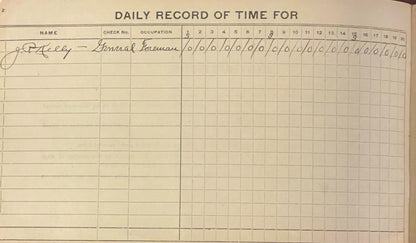 DAILY RECORD OF TIME FOR
NAME CHECK No. OCCUPATION 1 2 3 4 5 6 7 8 9 10 11 12 13 14 15 16 17 18 19 20
J. P. Kelly — General Foreman /0/0/0/0/0/0/0/0/0/0/0/0/0/0/0/0/0/0/0/0